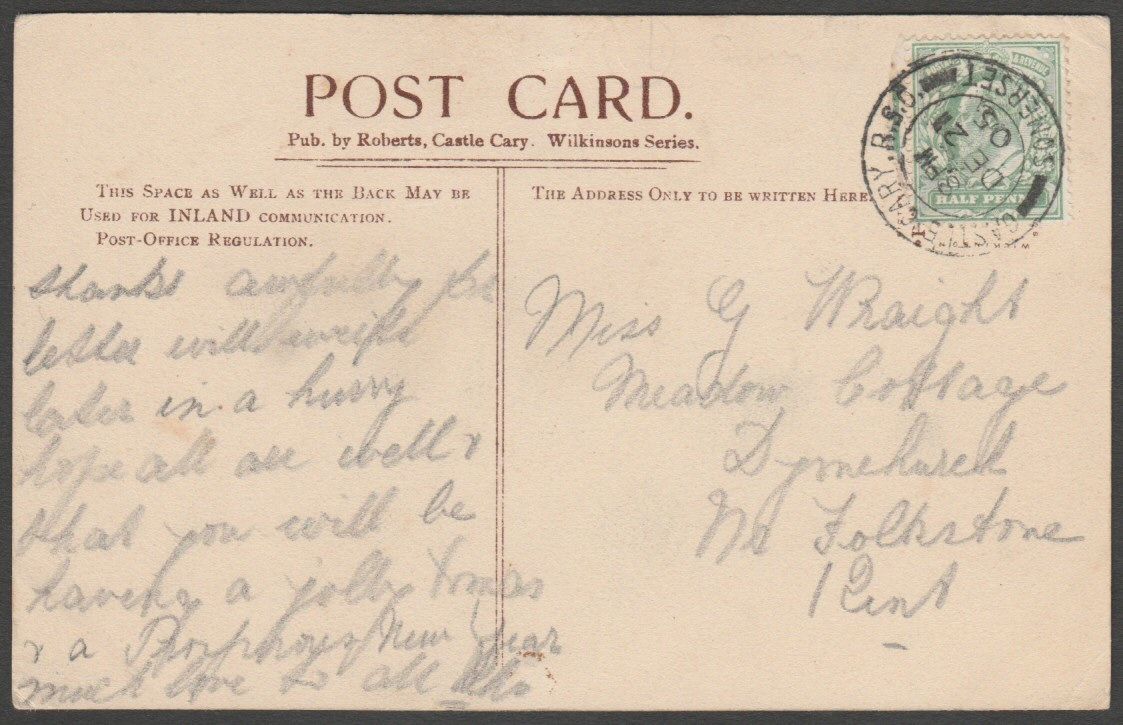 POST CARD.
Pub. by Roberts, Castle Cary. Wilkinsons Series.
THIS SPACE AS WELL AS THE BACK MAY BE
USED FOR INLAND COMMUNICATION.
POST-OFFICE REGULATION.
thanks awfully for
letter will write
later in a hurry
hope all are well &
that you will be
having a jolly Xmas
& a New Year
much love to all
THE ADDRESS ONLY TO BE WRITTEN HERE.
CASTLE CARY. R.S.O. SOMERSET
PM
DE 2
05
& REVENUE
HALF PENNY
Miss G Wraight
Meadow Cottage
Dymchurch
Nr Folkstone
Kent